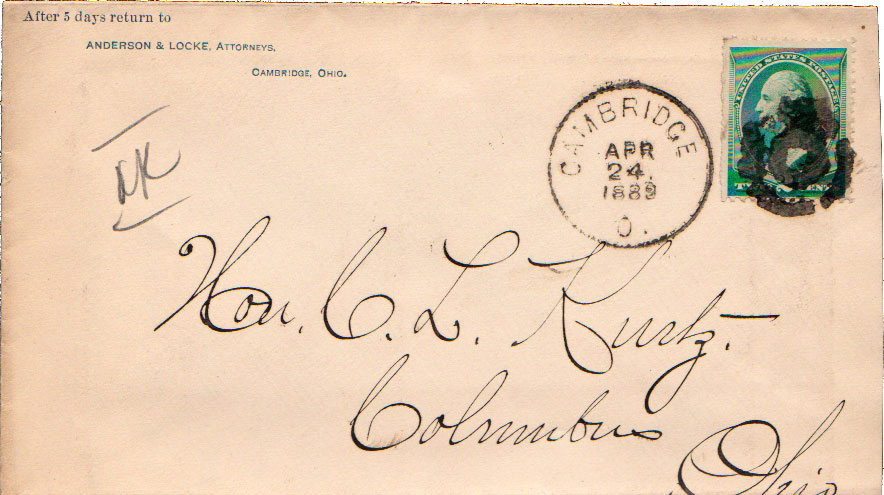 After 5 days return to
ANDERSON & LOCKE, ATTORNEYS,
CAMBRIDGE, OHIO.
CAMBRIDGE
APR
24.
O.
UNITED STATES POSTAGE
Hon. C. L. Kurtz.
Columbus
Ohio